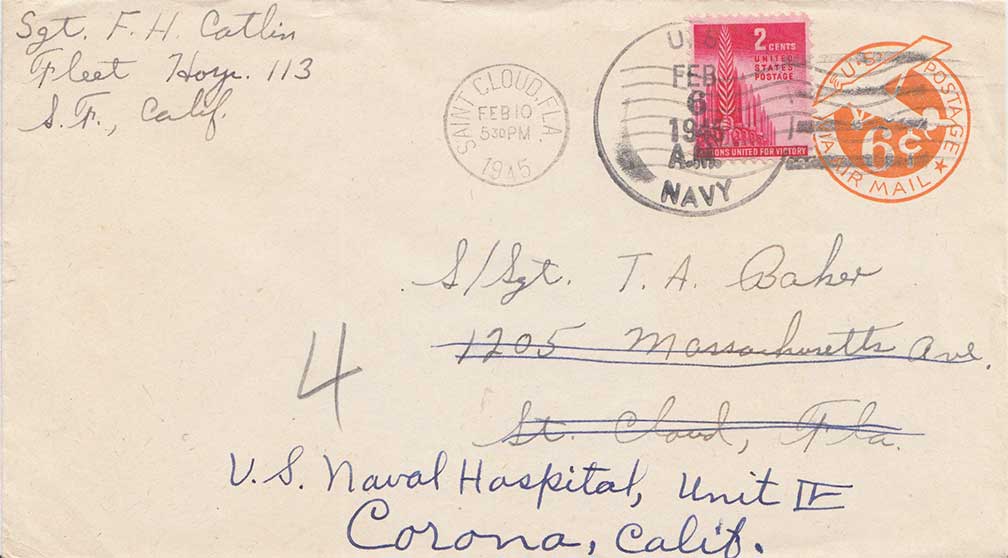 Sgt. F. H. Catlin
Fleet Hosp. 113
S. F., Calif.
SAINT CLOUD, FLA.
FEB 10
5 30 PM
1945
U. S.
FEB
6
1945
A.M.
NAVY
2 CENTS
UNITED
STATES
POSTAGE
IONS UNITED FOR VICTORY
U.S. POSTAGE
VIA AIR MAIL
6¢
S/Sgt. T. A. Baker
1205 Massachusetts Ave.
St. Cloud, Fla.
4
U.S. Naval Hospital, Unit IV
Corona, Calif.